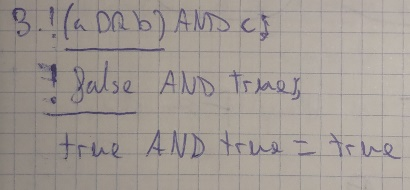 3. !(a OR b) AND c;
! false AND true;
true AND true = true